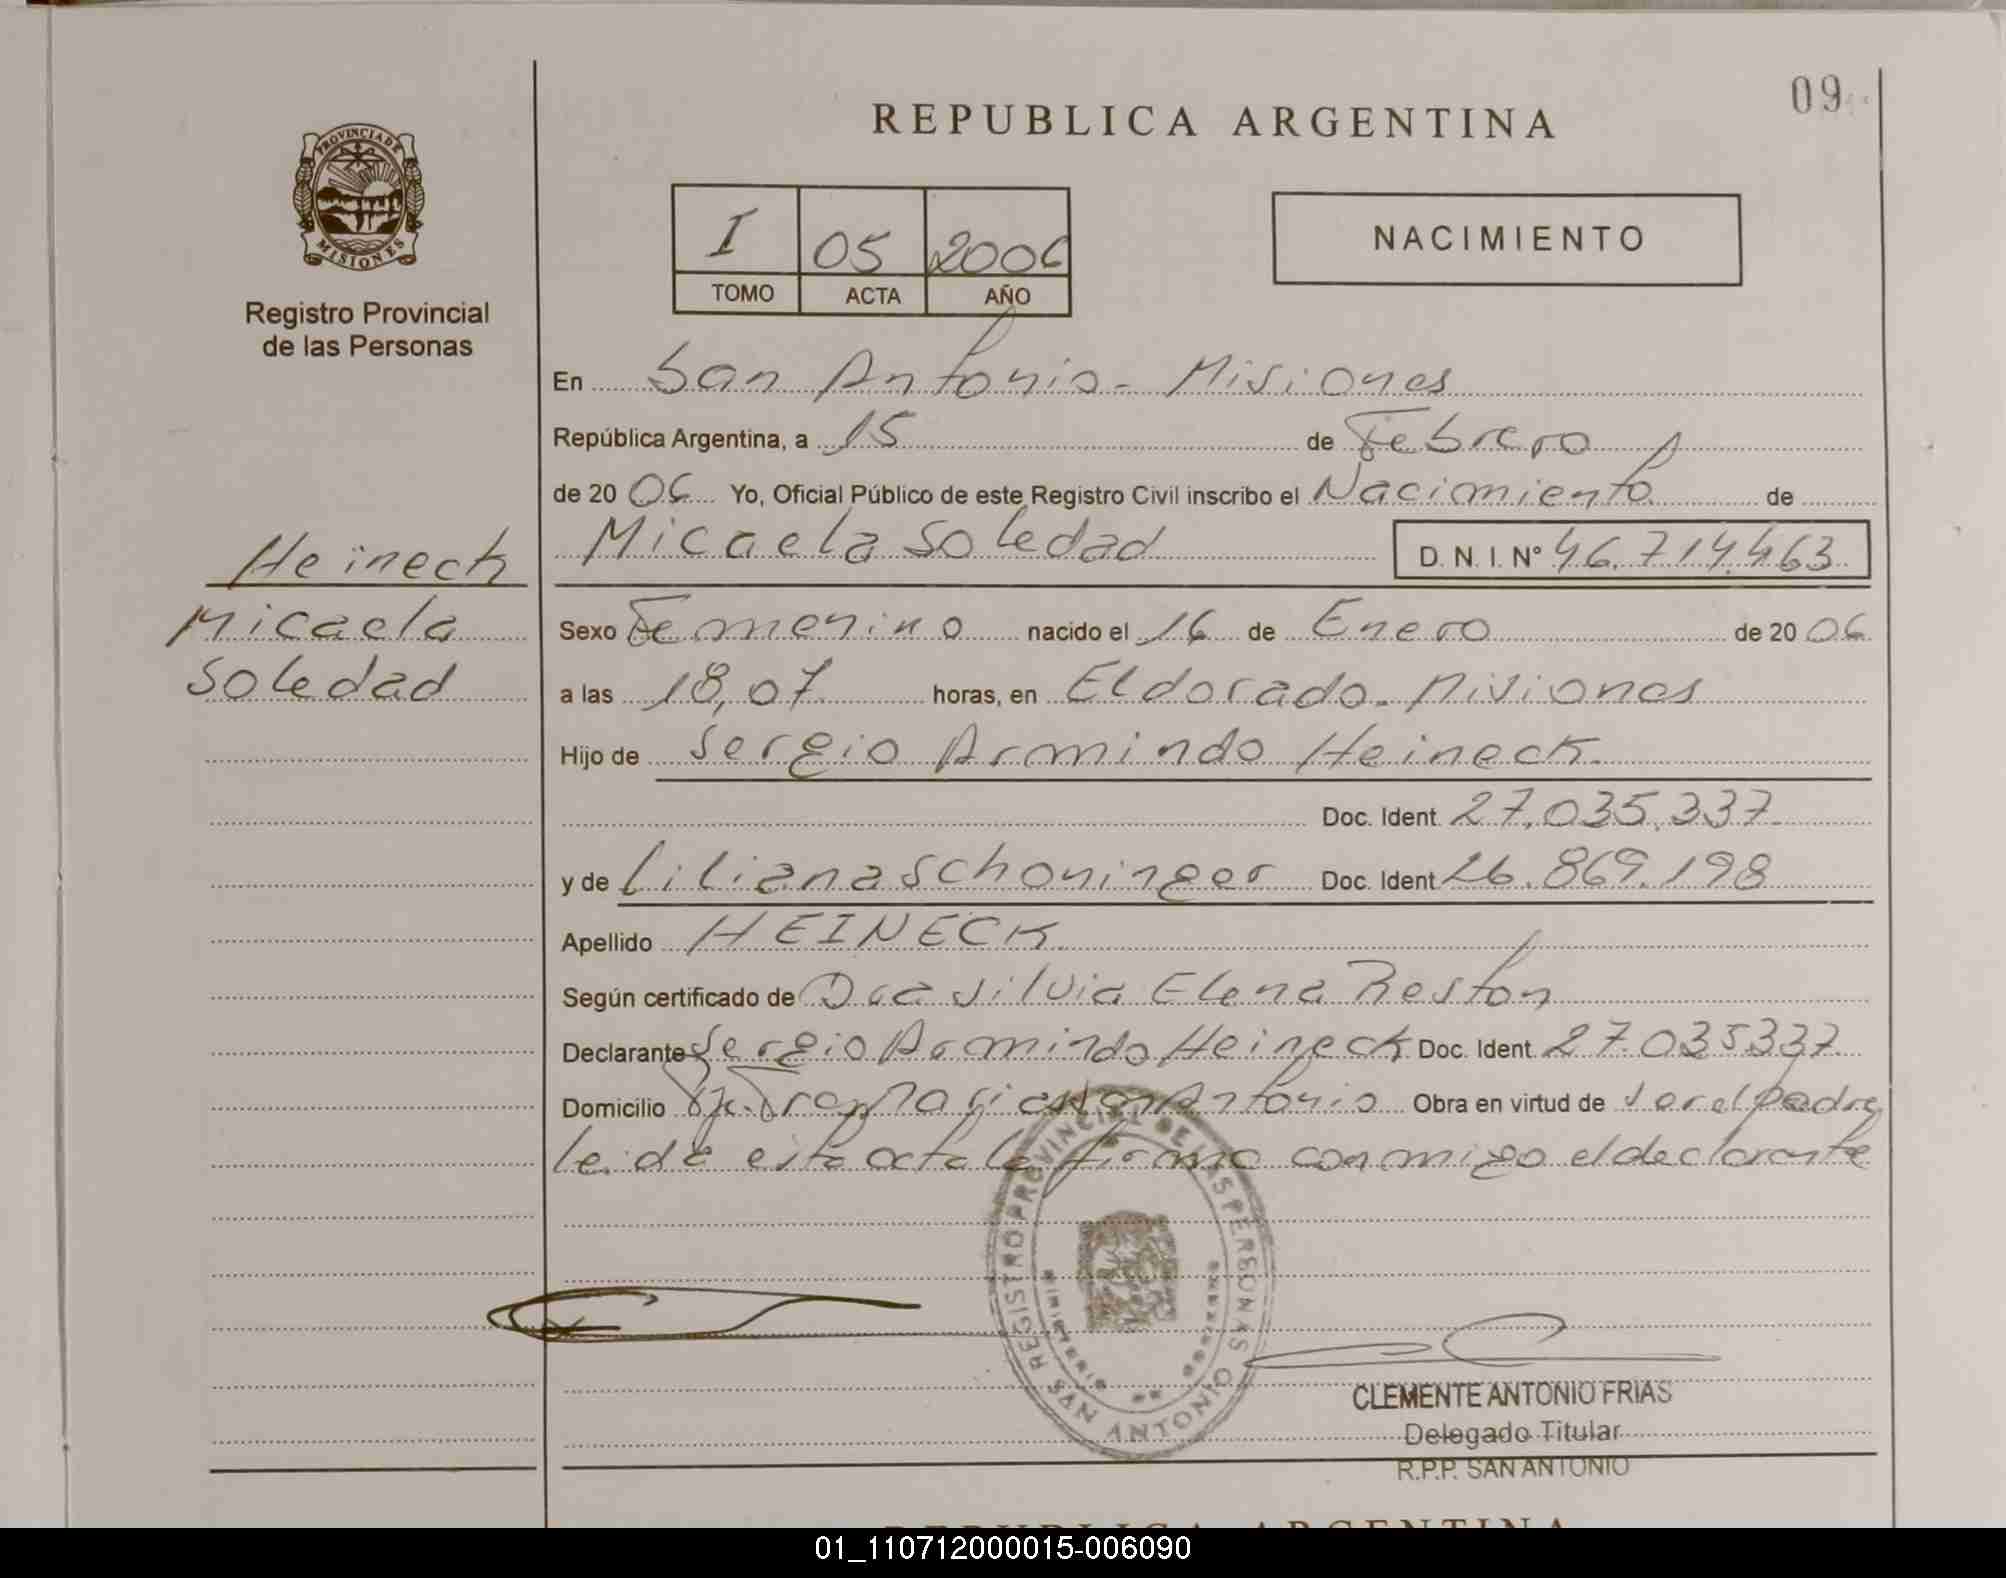 09
REPUBLICA ARGENTINA
PROVINCIA DE
MISIONES
Registro Provincial
de las Personas
I 05 2006
TOMO ACTA AÑO
NACIMIENTO
En San Antonio - Misiones
República Argentina, a 15 de Febrero
de 20 06 Yo, Oficial Público de este Registro Civil inscribo el Nacimiento de
Micaela Soledad D. N. I. Nº 46.714.463
Heineck
Micaela
Soledad
Sexo Femenino nacido el 16 de Enero de 20 06
a las 18,07 horas, en Eldorado - Misiones
Hijo de Sergio Armindo Heineck
Doc. Ident. 27.035.337
y de Liliana Schoninger Doc. Ident. 26.869.198
Apellido HEINECK
Según certificado de Dra Silvia Elena Reston
Declarante Sergio Armindo Heineck Doc. Ident. 27.035337
Domicilio San Antonio Obra en virtud de ser el padre
leida esta acta la firma conmigo el declarante
REGISTRO PROVINCIAL DE LAS PERSONAS
MINISTERIO
SAN ANTONIO
CLEMENTE ANTONIO FRIAS
Delegado Titular
R.P.P. SAN ANTONIO
REPUBLICA ARGENTINA
01_110712000015-006090